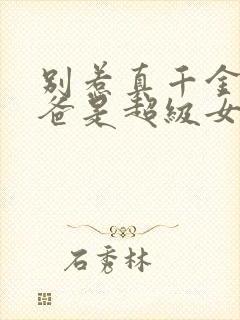 别惹真千金
爸是超级女
石秀林